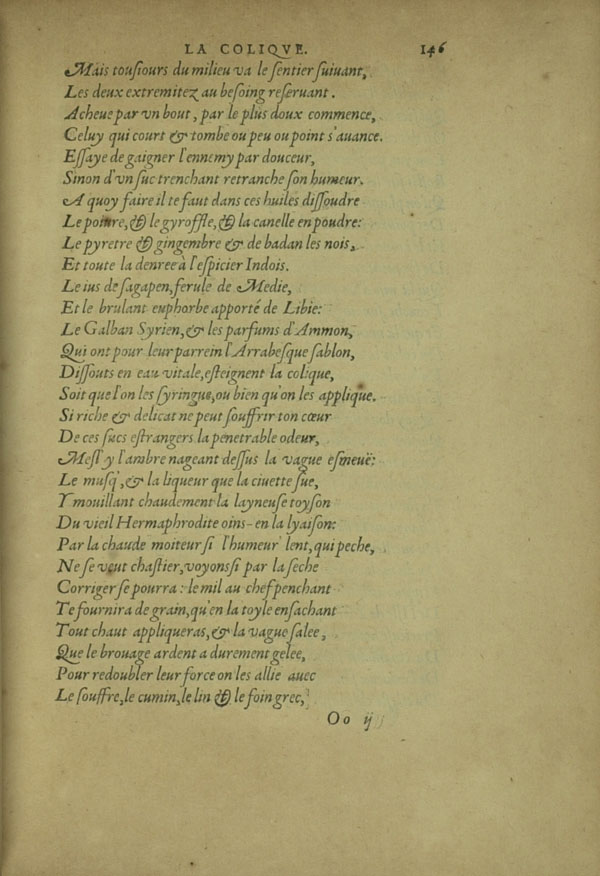 LA COLIQVE. 146
Mais tousiours du milieu va le sentier suiuant,
Les deux extremitez au besoing reseruant.
Acheue par vn bout, par le plus doux commence,
Celuy qui court & tombe ou peu ou point s'auance.
Essaye de gaigner l'ennemy par douceur,
Sinon d'vn suc trenchant retranche son humeur.
A quoy faire il te faut dans ces huiles dissoudre
Le poiure, & le gyroffle, & la canelle en poudre:
Le pyretre & gingembre & de badan les nois,
Et toute la denree à l'espicier Indois.
Le ius de sagapen, ferule de Medie,
Et le brulant euphorbe apporté de Libie:
Le Galban Syrien, & les parfums d'Ammon,
Qui ont pour leur parrein l'Arrabesque sablon,
Dissouts en eau vitale, esteignent la colique,
Soit que l'on les syringue, ou bien qu'on les applique.
Si riche & delicat ne peut souffrir ton cœur
De ces sucs estrangers la penetrable odeur,
Mesl' y l'ambre nageant dessus la vague esmeuë:
Le musq', & la liqueur que la ciuette sue,
Y mouillant chaudement la layneuse toyson
Du vieil Hermaphrodite oins-en la lyaison:
Par la chaude moiteur si l'humeur lent, qui peche,
Ne se veut chastier, voyons si par la seche
Corriger se pourra: le mil au chef penchant
Te fournira de grain, qu'en la toyle ensachant
Tout chaut appliqueras, & la vague salee,
Que le brouage ardent a durement gelee,
Pour redoubler leur force on les allie auec
Le souffre, le cumin, le lin & le foin grec,
Oo ij